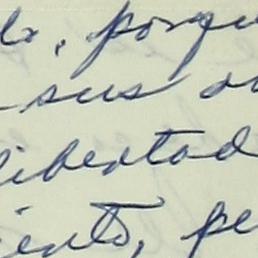 porqu
sus
libertad
iento, pe